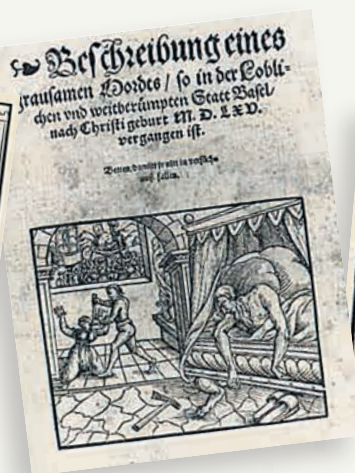 Beschreibung eines
grausamen Mordes / so in der Lobli-
chen vnd weitberümpten Statt Basel /
nach Christi geburt M. D. LXV.
vergangen ist.